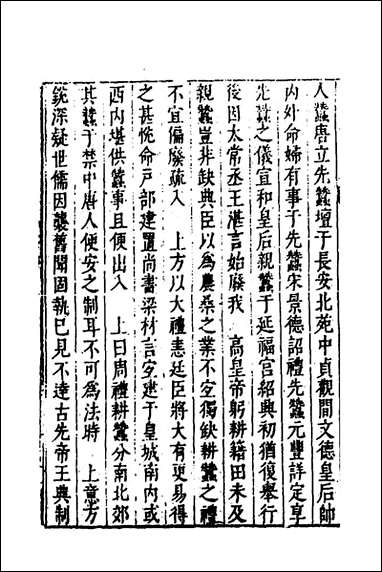 人蠶唐立先蠶壇于長安北苑中貞觀間文德皇后帥
内外命婦有事于先蠶宋景德詔禮先蠶元豐詳定享
先蠶之儀宜和皇后親蠶于延福宫紹興初猶復舉行
後因太常丞王湛言始廢我　高皇帝躬耕籍田未及
親蠶豈非缺典臣以為農桑之業不空獨缺耕蠶之禮
不宜偏廢疏入　上方以大禮恚廷臣將大有更易得
之甚恱命戸部建置尚書梁材言安建于皇城南内或
西内堪供蠶事且便出入　上曰周禮耕蠶分南北郊
其蠶于禁中唐人便安之制耳不可為法時　上意方
銳深疑世儒因襲舊聞固執已見不達古先帝王典制